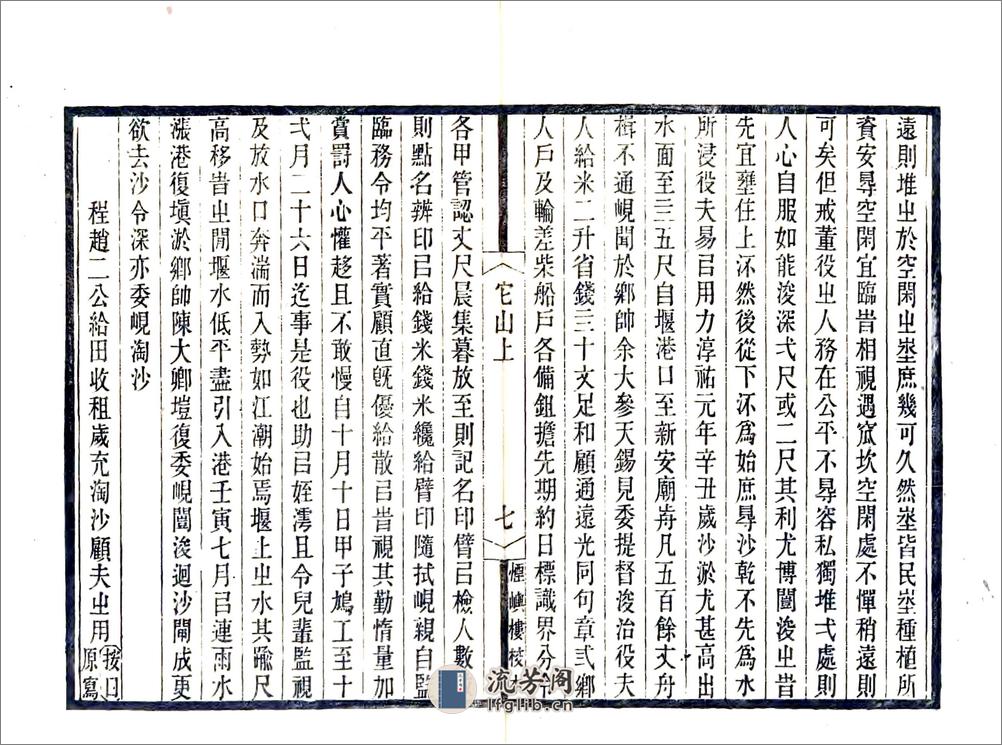 遠則堆㞢於空閑㞢埊庶幾可久然埊皆民埊種植所
資安尋空閑宜臨旹相視遇窊坎空閑處不憚稍遠則
可矣但戒董役㞢人務在公平不尋容私獨堆弌處則
人心自服如能浚深弌尺或二尺其利尤博闓浚㞢旹
先宜壅住上沠然後從下沠爲始庶尋沙乾不先爲水
所浸役夫易㠯用力淳祐元年辛丑歲沙淤尤甚高出
水面至三五尺自堰港口至新安廟歬凡五百餘丈舟
楫不通峴聞於鄉帥余大參天錫見委提督浚治役夫
人給米二升省錢三十文足和顧通遠光同句章弎鄉
人戶及輪差柴船戶各備鉏擔先期約日標識界分
它山上
七
煙嶼樓校
各甲管認丈尺晨集暮放至則記名印臂㠯檢人數
則點名辨印㠯給錢米錢米纔給臂印隨拭峴親自監
臨務令均平著實顧直旣優給散㠯旹視其勤惰量加
賞罰人心懽趍且不敢慢自十月十日甲子鳩工至十
弌月二十六日迄事是役也助㠯姪澪且令兒輩監視
及放水口奔湍而入勢如江潮始焉堰上㞢水其踰尺
高移旹㞢閒堰水低平盡引入港壬寅七月㠯連雨水
漲港復塡淤鄉帥陳大卿塏復委峴闓浚迴沙閘成更
欲去沙令深亦委峴淘沙
程趙二公給田收租歲充淘沙顧夫㞢用
按日
原寫
流芳阁
lfglib.cn